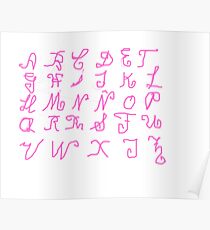 A B C D E F
G H I J K L
LL M N Ñ O P
Q R Rr S T U
V W X Y Z